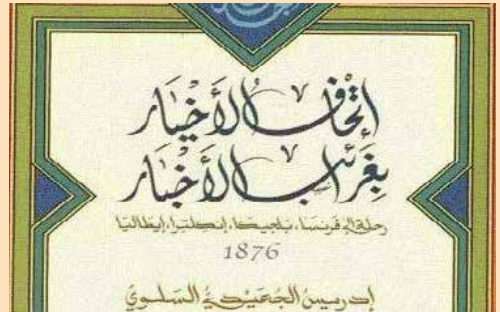 إتحاف الأخيار
بغرائب الأخبار
رحلة إلى فرنسا، بلجيكا، إنكلترا، إيطاليا
1876
إدريس الجعيدي السلوي